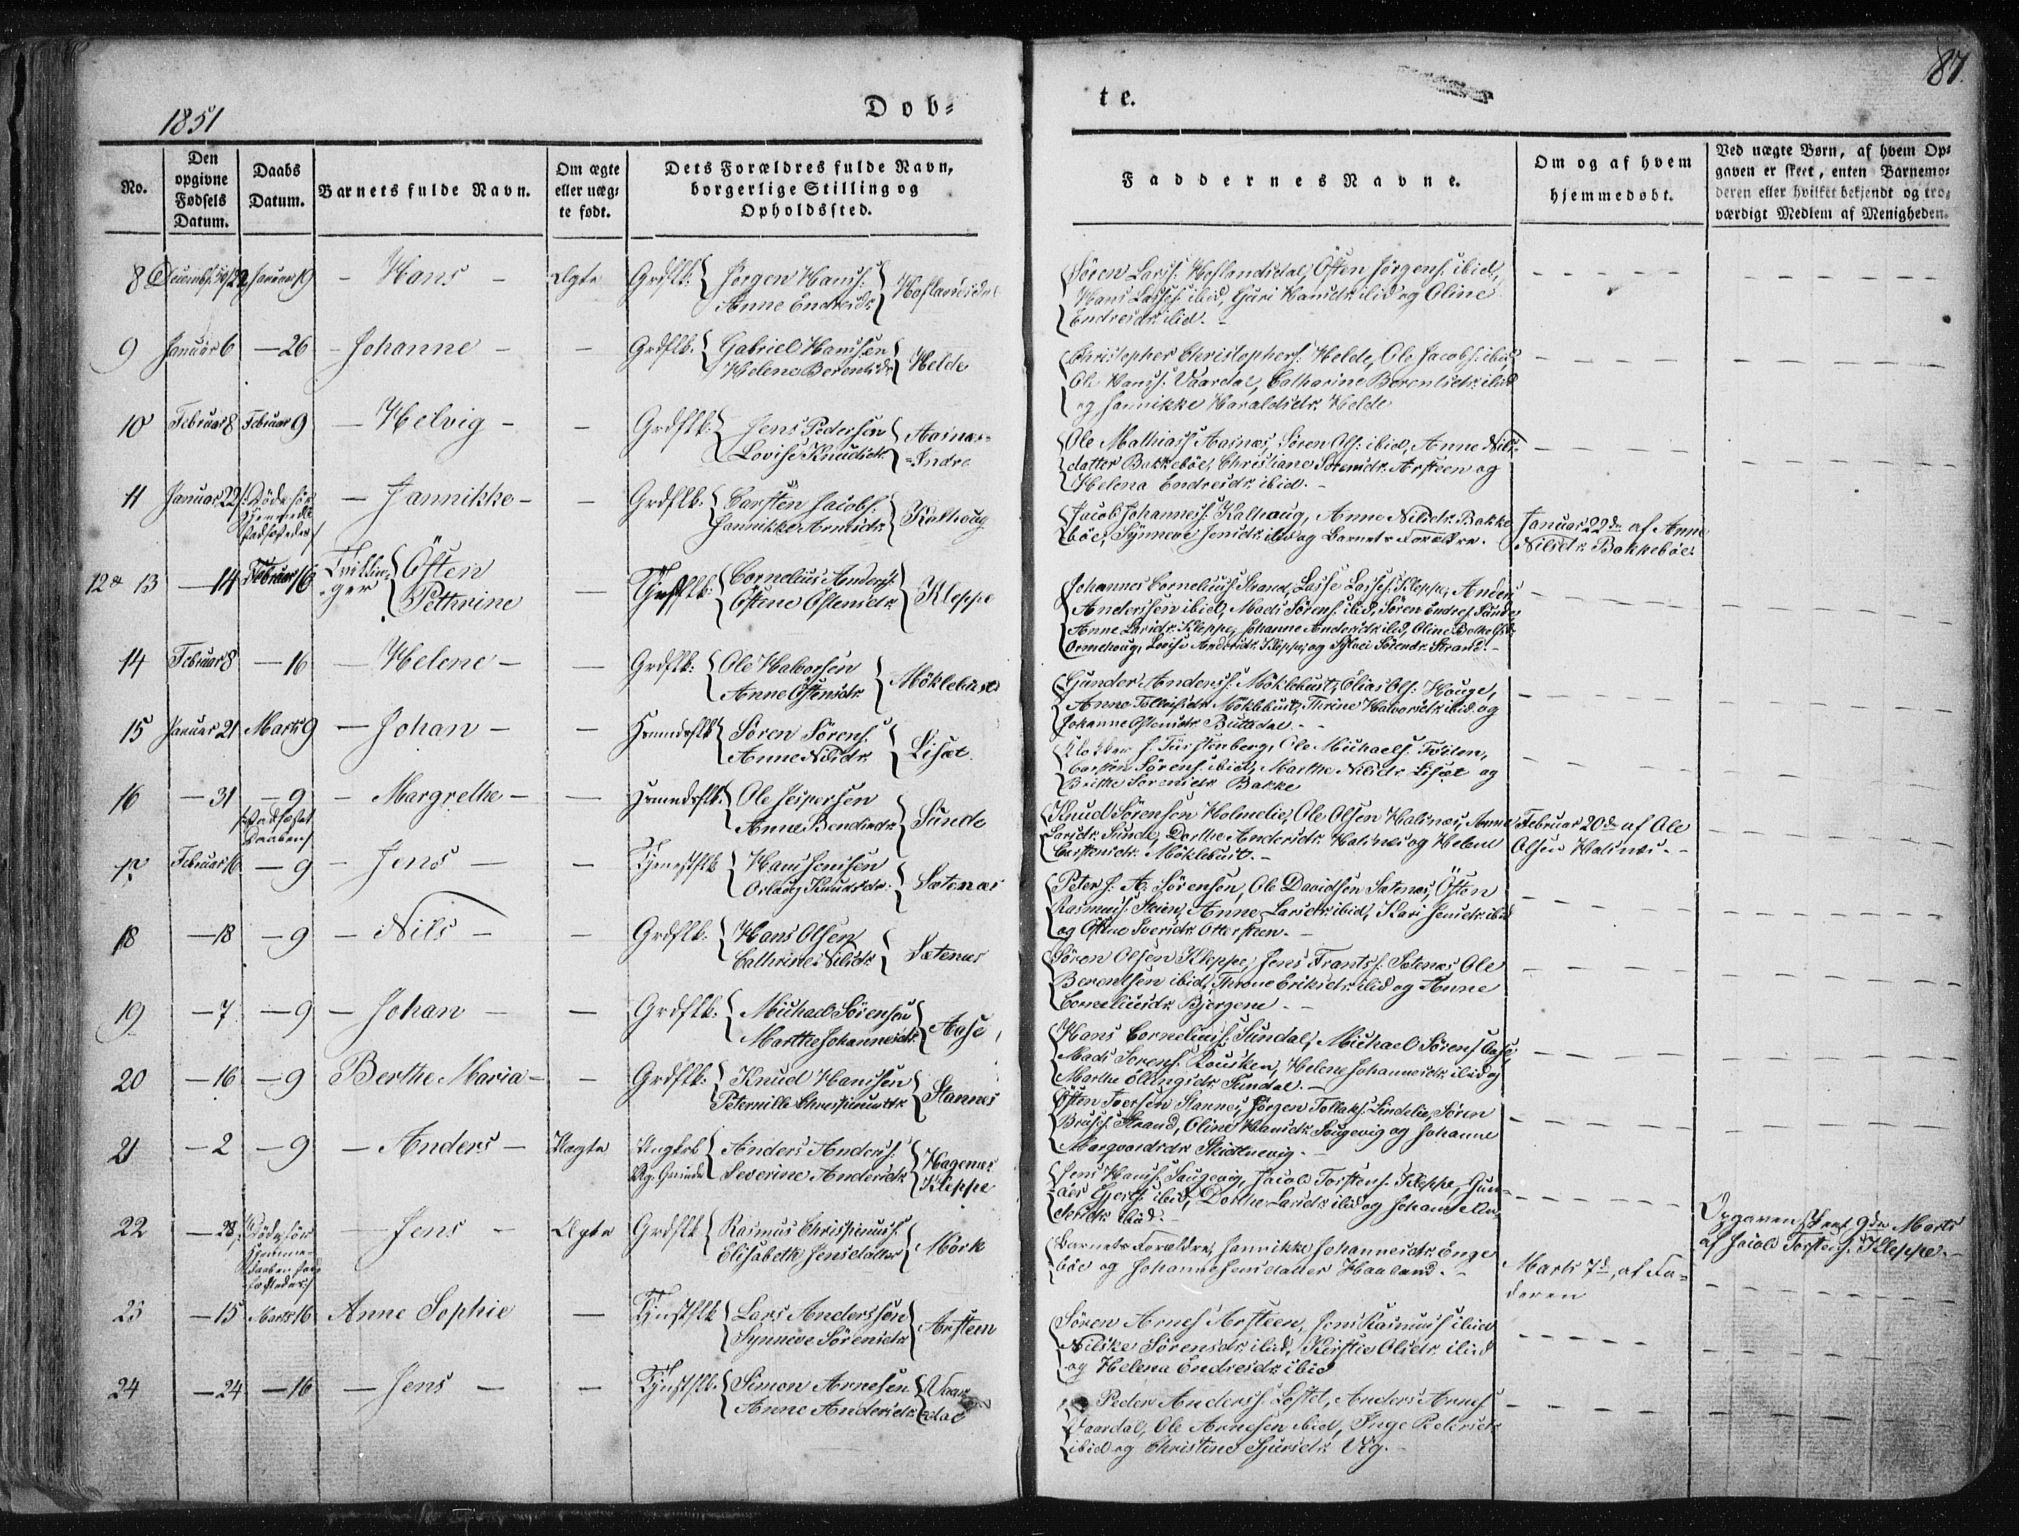 87.
1851
Dob=
te.
No.
Den opgivne Fødsels Datum.
Daabs Datum.
Barnets fulde Navn.
Om ægte eller uæg= te født.
Dets Forældres fulde Navn, borgerlige Stilling og Opholdssted.
Faddernes Navne.
Om og af hvem hjemmedøbt.
Ved uægte Børn, af hvem Op= gaven er skeet, enten Barnemo= deren eller hvilket bekjendt og tro= værdigt Medlem af Menigheden.
8 Januar 19 — Hans — Ægte Grdflk: Jørgen Hanss: Anne Endresdr.
Søren Larss: Hoflandsdal, Østen Jørgens: ibid,
Hans Lasses: ibid, Guri Hansdr. ibid og Oline
Endresdr. ibid. —
9 Januar 6 — 26 — Johanne — — Grdflk: Gabriel Hanssen Helene Berentsdr. Helde
Christopher Christophers: Helde, Ole Jacobs: ibid,
Ole Hanss: Vaardal, Cathrine Berentsdr. ibid
og Jannikke Haraldsdr. Helde
10 Februar 8 Februar 9 — Helvig — — Grdflk: Jens Pedersen Lovise Knudsdr. Aasnæs= =Indre
Ole Mathiass: Aasnæs, Søren Ols: ibid, Anne Nils=
datter Bakkebøe, Christiane Sørensdr. Arsteen og
Helena Endresdr. ibid. —
11 Januar 22 — Jannikke — — Grdflk: Carsten Jacobs: Jannikke Arnesdr. Kalhoug
Jacob Johanness: Kalhoug, Anne Nilsdr. Bakke
bøe, Synneve Jensdr. ibid og Barnets Forældre.
Januar 22de af Anne
Nilsdr. Bakkebøe.
12 & 13 — 14 Februar 16 Tvillin= ger Østen Pethrine — Tjnstflk: Cornelius Anders: Ostene Ostensdr. Kleppe
Johannes Corneliuss: Strand, Lasse Lasses: Kleppe, Anders
Anderssen ibid, Mads Sørens: ibid, Søren Endres: Sunde,
Anne Larsdr. Kleppe, Johanne Andersdr. ibid, Oline
Ormehoug, Lovise Andersdr. Kleppe og Sørensdr. Strand. —
14 Februar 8 — 16 — Helene — — Grdflk: Ole Halvorsen Anne Østensdr. Möklebust
Gunder Anders: Möklebust, Elias Ols: Houge,
Anne Tollefsdr. Möklebust, Thrine Halvorsdr. ibid og
Johanne Ostensdr. —
15 Januar 21 Marts 9 — Johan — — Huusmdsflk Søren Sørens: Anne Nilsdr. Lisæt
Klokker J. Fürstenberg, Ole Michaels: Tviten,
Carsten Sørens: ibid, Marthe Nilsdr. Lisæt og
Brithe Sørensdr. Bakke
16 — 31 — 9 — Margrethe — — Ole Jespersen Anne Bendixdr. Sunde
Knud Sørensen Holmelie, Ole Olsen Halsnæs, Anne
Larsdr. Sunde, Dorthe Andersdr. Halsnæs og Helene
Carstensdr. Möklebust. —
Februar 20de af Ole
Olsen Halsnæs. —
17 Februar 16 — 9 — Jens — — Tjenestflk Hans Jenssen Knudsdr. Sætenæs
Peter J. A. Sörensen, Ole Davidsen Sætenæs, Østen
Rasmuss: Steien, Anne Larsdr. ibid, Kari Jensdr. ibid
og Iversdr. Ottersteen. —
18 — 18 — 9 — Nils — — Grdflk: Hans Olsen Cathrine Nilsdr. Sætenæs
Søren Olsen Kleppe, Jens Frants: Sætenæs, Ole
Berentsen ibid, Throne Eriksdr. ibid og Anne
Corneliusdr. Bjergene —
19 — 7 — 9 — Johan — — Grdflk: Michael Sørensen Marthe Johannesdr. Aase
Hans Corneliuss: Sundal, Michael Sørens: Aase,
Mads Sørens: , Helene Johannesdr. ibid og
Marthe Ellingsdr. Sundal. —
20 — 16 — 9 — Berthe Maria — — Grdflk: Knud Hanssen Peternille Chrispinusdr. Stannes
Østen Iversen Stannes, Jørgen Tollaks: Lindelie, Søren
Strand, Oline Hansdr. Saugevig og Johanne
Margvardsdr. Skiftnevig. —
21 — 2 — 9 — Anders — Uægte Anders Anders: Severine Andersdr. Hagenæs Kleppe
Jens Hanss: Saugevig, Jacob Torstens: Kleppe, Gun=
Gjerts: ibid, Dorthe Larsdr. ibid og Johanne
ibid. —
Opgaven skeet 9de Marts
af Jacob Torstens: Kleppe. —
22 — 28 — Jens — Ægte Grdflk Rasmus Chrispinuss: Elisabeth Jensdatter Mørk
Barnets Forældre, Jannikke Johannesdr. Enge
bøe og Johanne Jensdatter Haaland. —
Marts 7de af Fa=
deren
23 — 15 Marts 16 Anne Sophie — Tjnstflk Lars Anderssen Synneve Sörensdr. Arsteen
Søren Arnes: Arsteen, Jens Rasmuss: ibid
Nilske Sørensdr. ibid, Kirstie Olsdr. ibid
og Helena Endresdr. ibid
24 — 24 — 16 — Jens — — Tjnstflk: Simon Arnesen Anne Andersdr. Vaar= dal
Peder Anders: Løstel, Anders Arnes:
Vaardal, Ole Arnesen ibid, Inge Pedersdr.
ibid og Christine Sjursdr. Vig. —